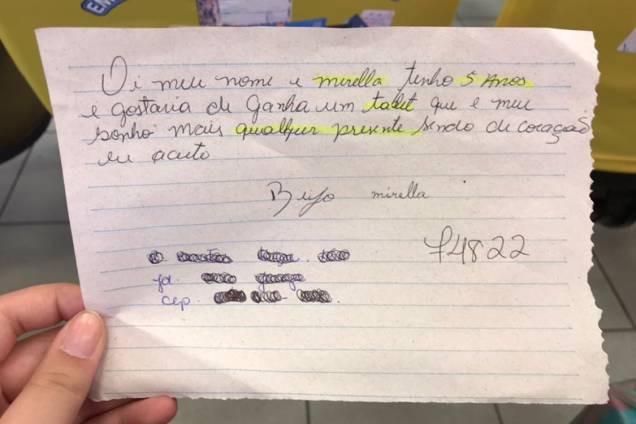 Oi meu nome e mirella tenho 5 Anos
e gostaria de Ganha um tablet que e meu
sonho mais qualquer presente sendo de coração
eu aceito
Beijo mirella
74822
jd.
cep.